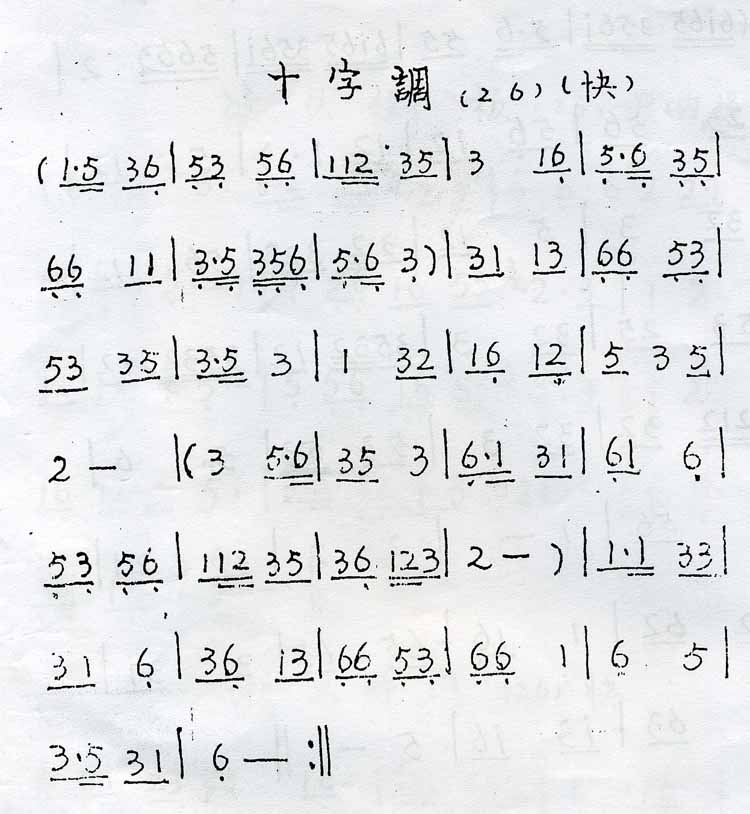 十字調 (26) (快)
(1·5 36|53 56|112 35|3 16|5·6 35|
66 11|3·5 356|5·6 3)|31 13|66 53|
53 35|3·5 3|1 32|16 12|5 3 5|
2 — |(3 5·6|35 3|6·1 31|61 6|
53 56|112 35|36 123|2 — )|1·1 33|
31 6|36 13|66 53|66 1|6 5|
3·5 31|6 — :||